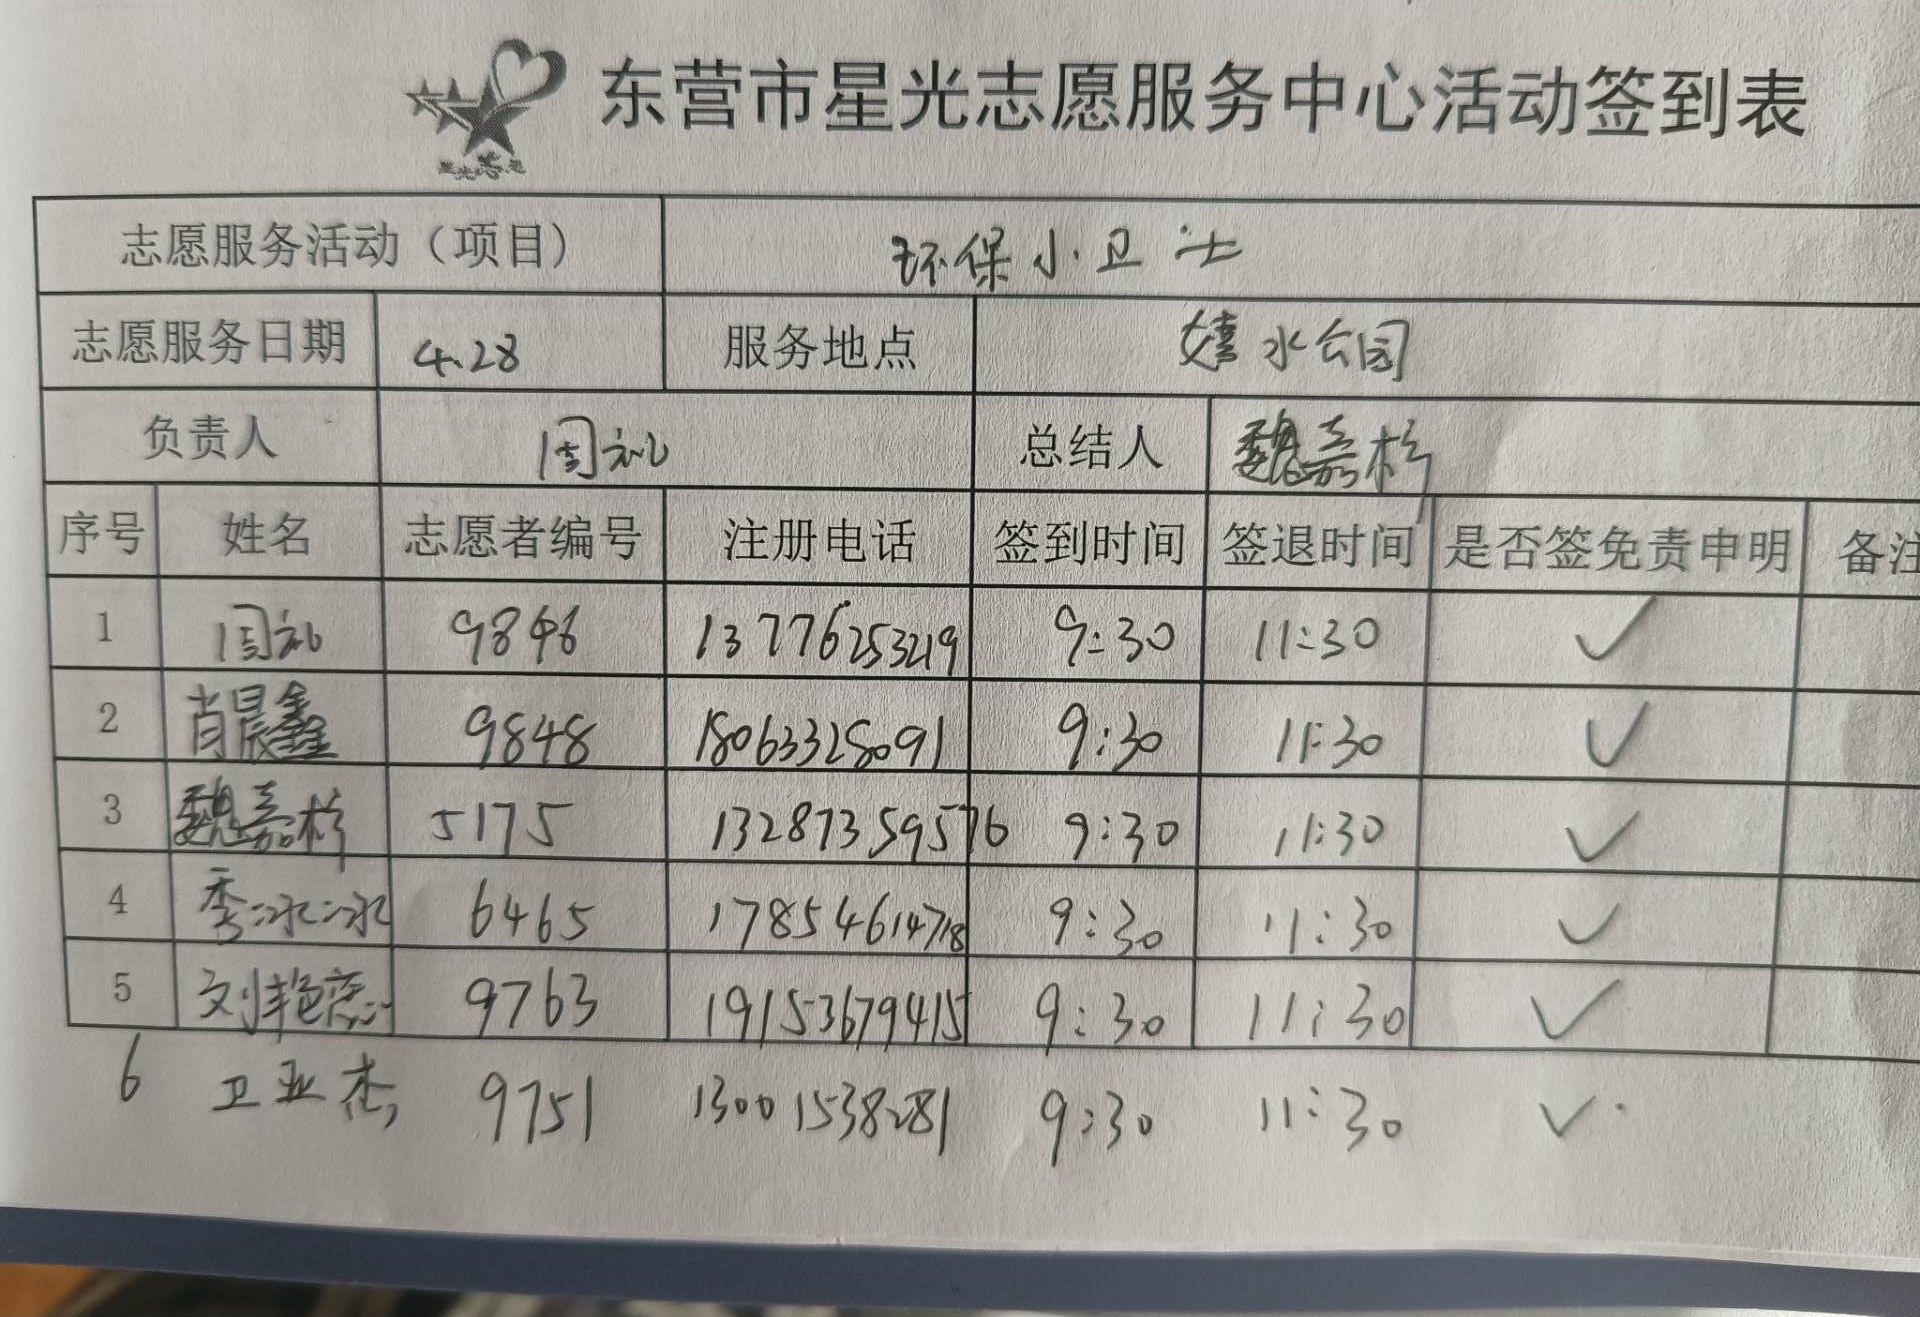 东营市星光志愿服务中心活动签到表
志愿服务活动（项目） 环保小卫士
志愿服务日期 4.28 服务地点 嬉水公园
负责人 周礼 总结人 魏嘉杉
序号 姓名 志愿者编号 注册电话 签到时间 签退时间 是否签免责申明 备注
1 周礼 9846 13776253219 9:30 11:30 ✓
2 肖晨鑫 9848 18063328091 9:30 11:30 ✓
3 魏嘉杉 5175 13287359576 9:30 11:30 ✓
4 季冰冰 6465 17854614718 9:30 11:30 ✓
5 刘艳 9763 19153679415 9:30 11:30 ✓
6 卫亚杰 9751 13001538281 9:30 11:30 ✓